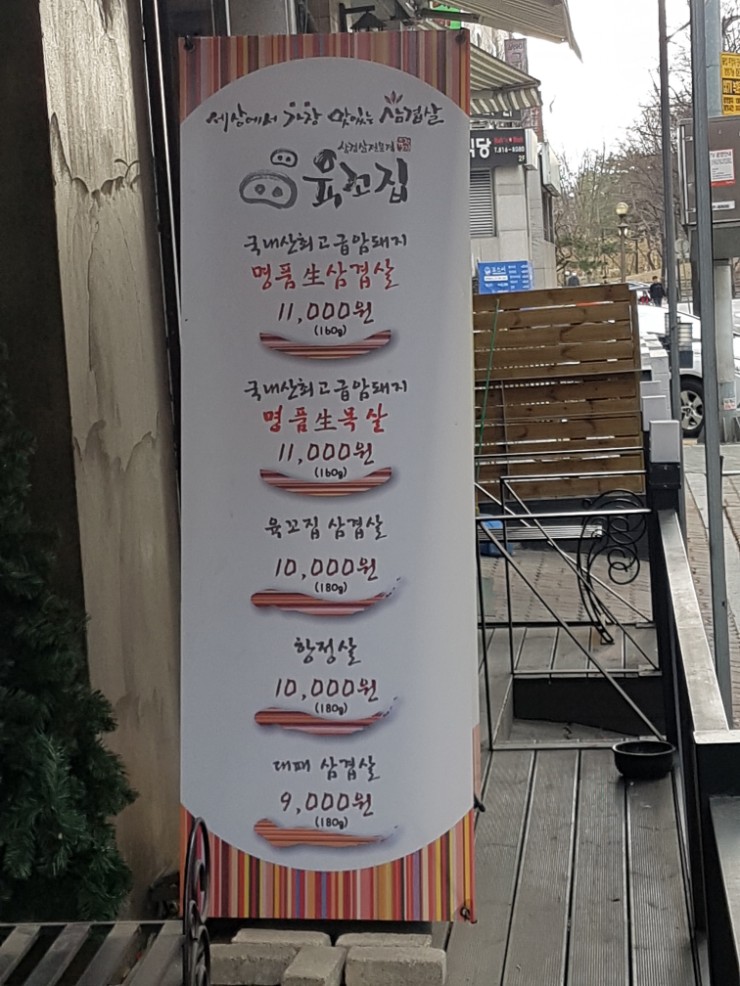 세상에서 가장 맛있는 삼겹살
육꼬집
국내산최고급암돼지
명품生삼겹살
11,000원
(160g)
국내산최고급암돼지
명품生목살
11,000원
(160g)
육꼬집 삼겹살
10,000원
(180g)
항정살
10,000원
(180g)
대패 삼겹살
9,000원
(180g)
식당
T.816-8080
2F